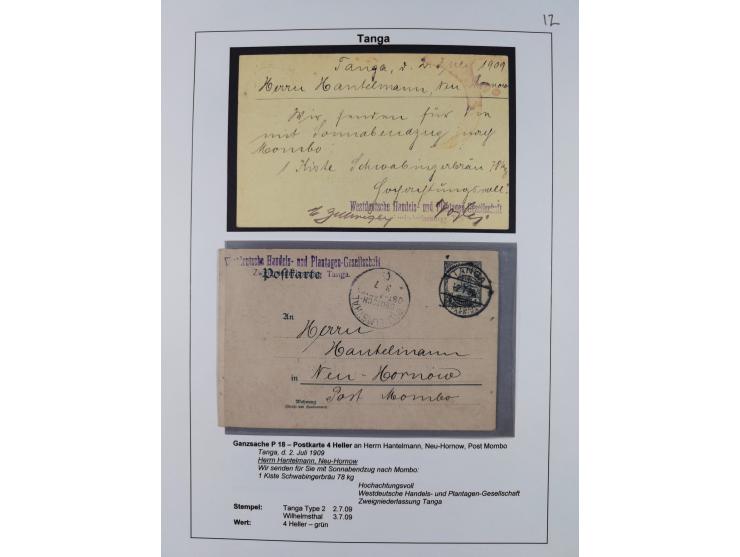 12
Tanga
Tanga, d. 2. July 1909
Herrn Hantelmann, Neu Hornow
Wir senden für Sie
mit Sonnabendzug nach
Mombo:
1 Kiste Schwabingerbräu 78 kg
Hochachtungsvoll
Westdeutsche Handels- und Plantagen-Gesellschaft
Westdeutsche Handels- und Plantagen-Gesellschaft
Tanga.
Postkarte
TANGA
WILHELMSTHAL
3 7
An
Herrn
Hantelmann
in Neu-Hornow
Post Mombo
Wohnung
Ganzsache P 18 – Postkarte 4 Heller an Herrn Hantelmann, Neu-Hornow, Post Mombo
Tanga, d. 2. Juli 1909
Herrn Hantelmann, Neu-Hornow
Wir senden für Sie mit Sonnabendzug nach Mombo:
1 Kiste Schwabingerbräu 78 kg
Hochachtungsvoll
Westdeutsche Handels- und Plantagen-Gesellschaft
Zweigniederlassung Tanga
Stempel: Tanga Type 2 2.7.09
Wilhelmsthal 3.7.09
Wert: 4 Heller – grün